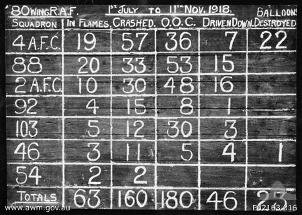 80 WING R.A.F. 1ST JULY TO 11TH NOV. 1918. BALLOONS
SQUADRON IN FLAMES. CRASHED. O.O.C. DRIVEN DOWN. DESTROYED
4 A.F.C. 19 57 36 7 22
88 20 33 53 15
2 A.F.C. 10 30 48 16
92 4 15 8 1
103 5 12 30 3
46 3 11 5 4 1
54 2 2
TOTALS 63 160 180 46
www.awm.gov.au